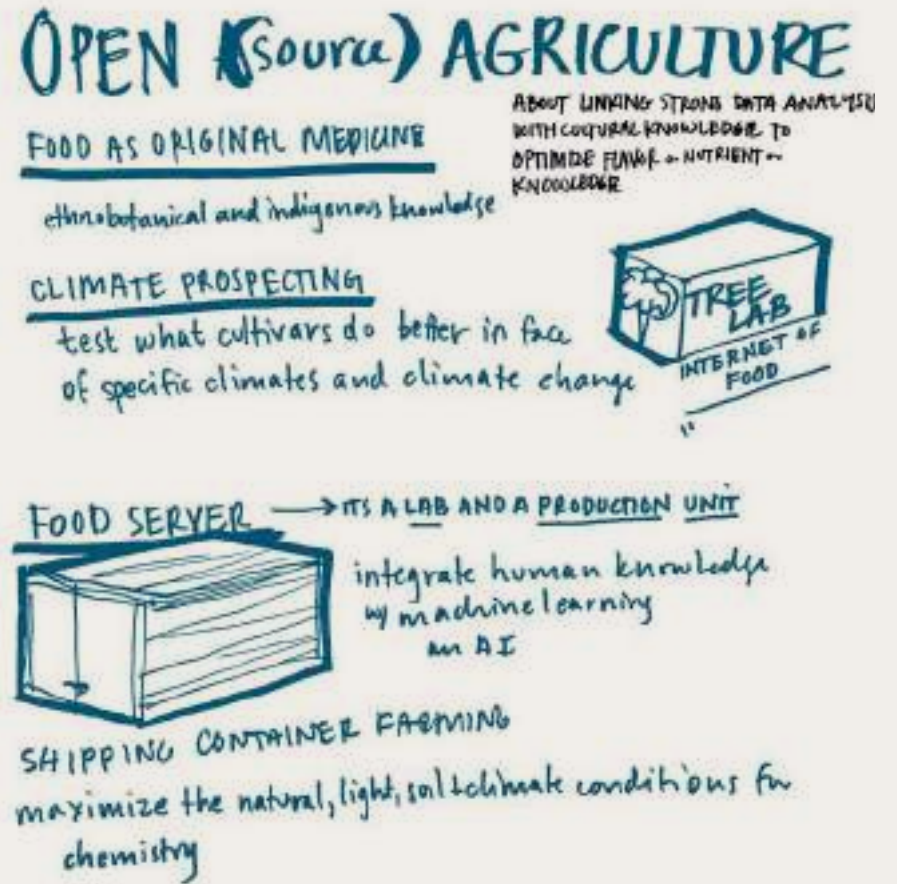 OPEN (source) AGRICULTURE
ABOUT LINKING STRONG DATA ANALYSIS
WITH CULTURAL KNOWLEDGE TO
OPTIMIZE FLAVOR + NUTRIENT +
KNOWLEDGE
FOOD AS ORIGINAL MEDICINE
ethnobotanical and indigenous knowledge
CLIMATE PROSPECTING
test what cultivars do better in face
of specific climates and climate change
TREE
LAB
INTERNET OF
FOOD
FOOD SERVER → ITS A LAB AND A PRODUCTION UNIT
integrate human knowledge
w/ machine learning
an AI
SHIPPING CONTAINER FARMING
maximize the natural, light, soil + climate conditions for
chemistry